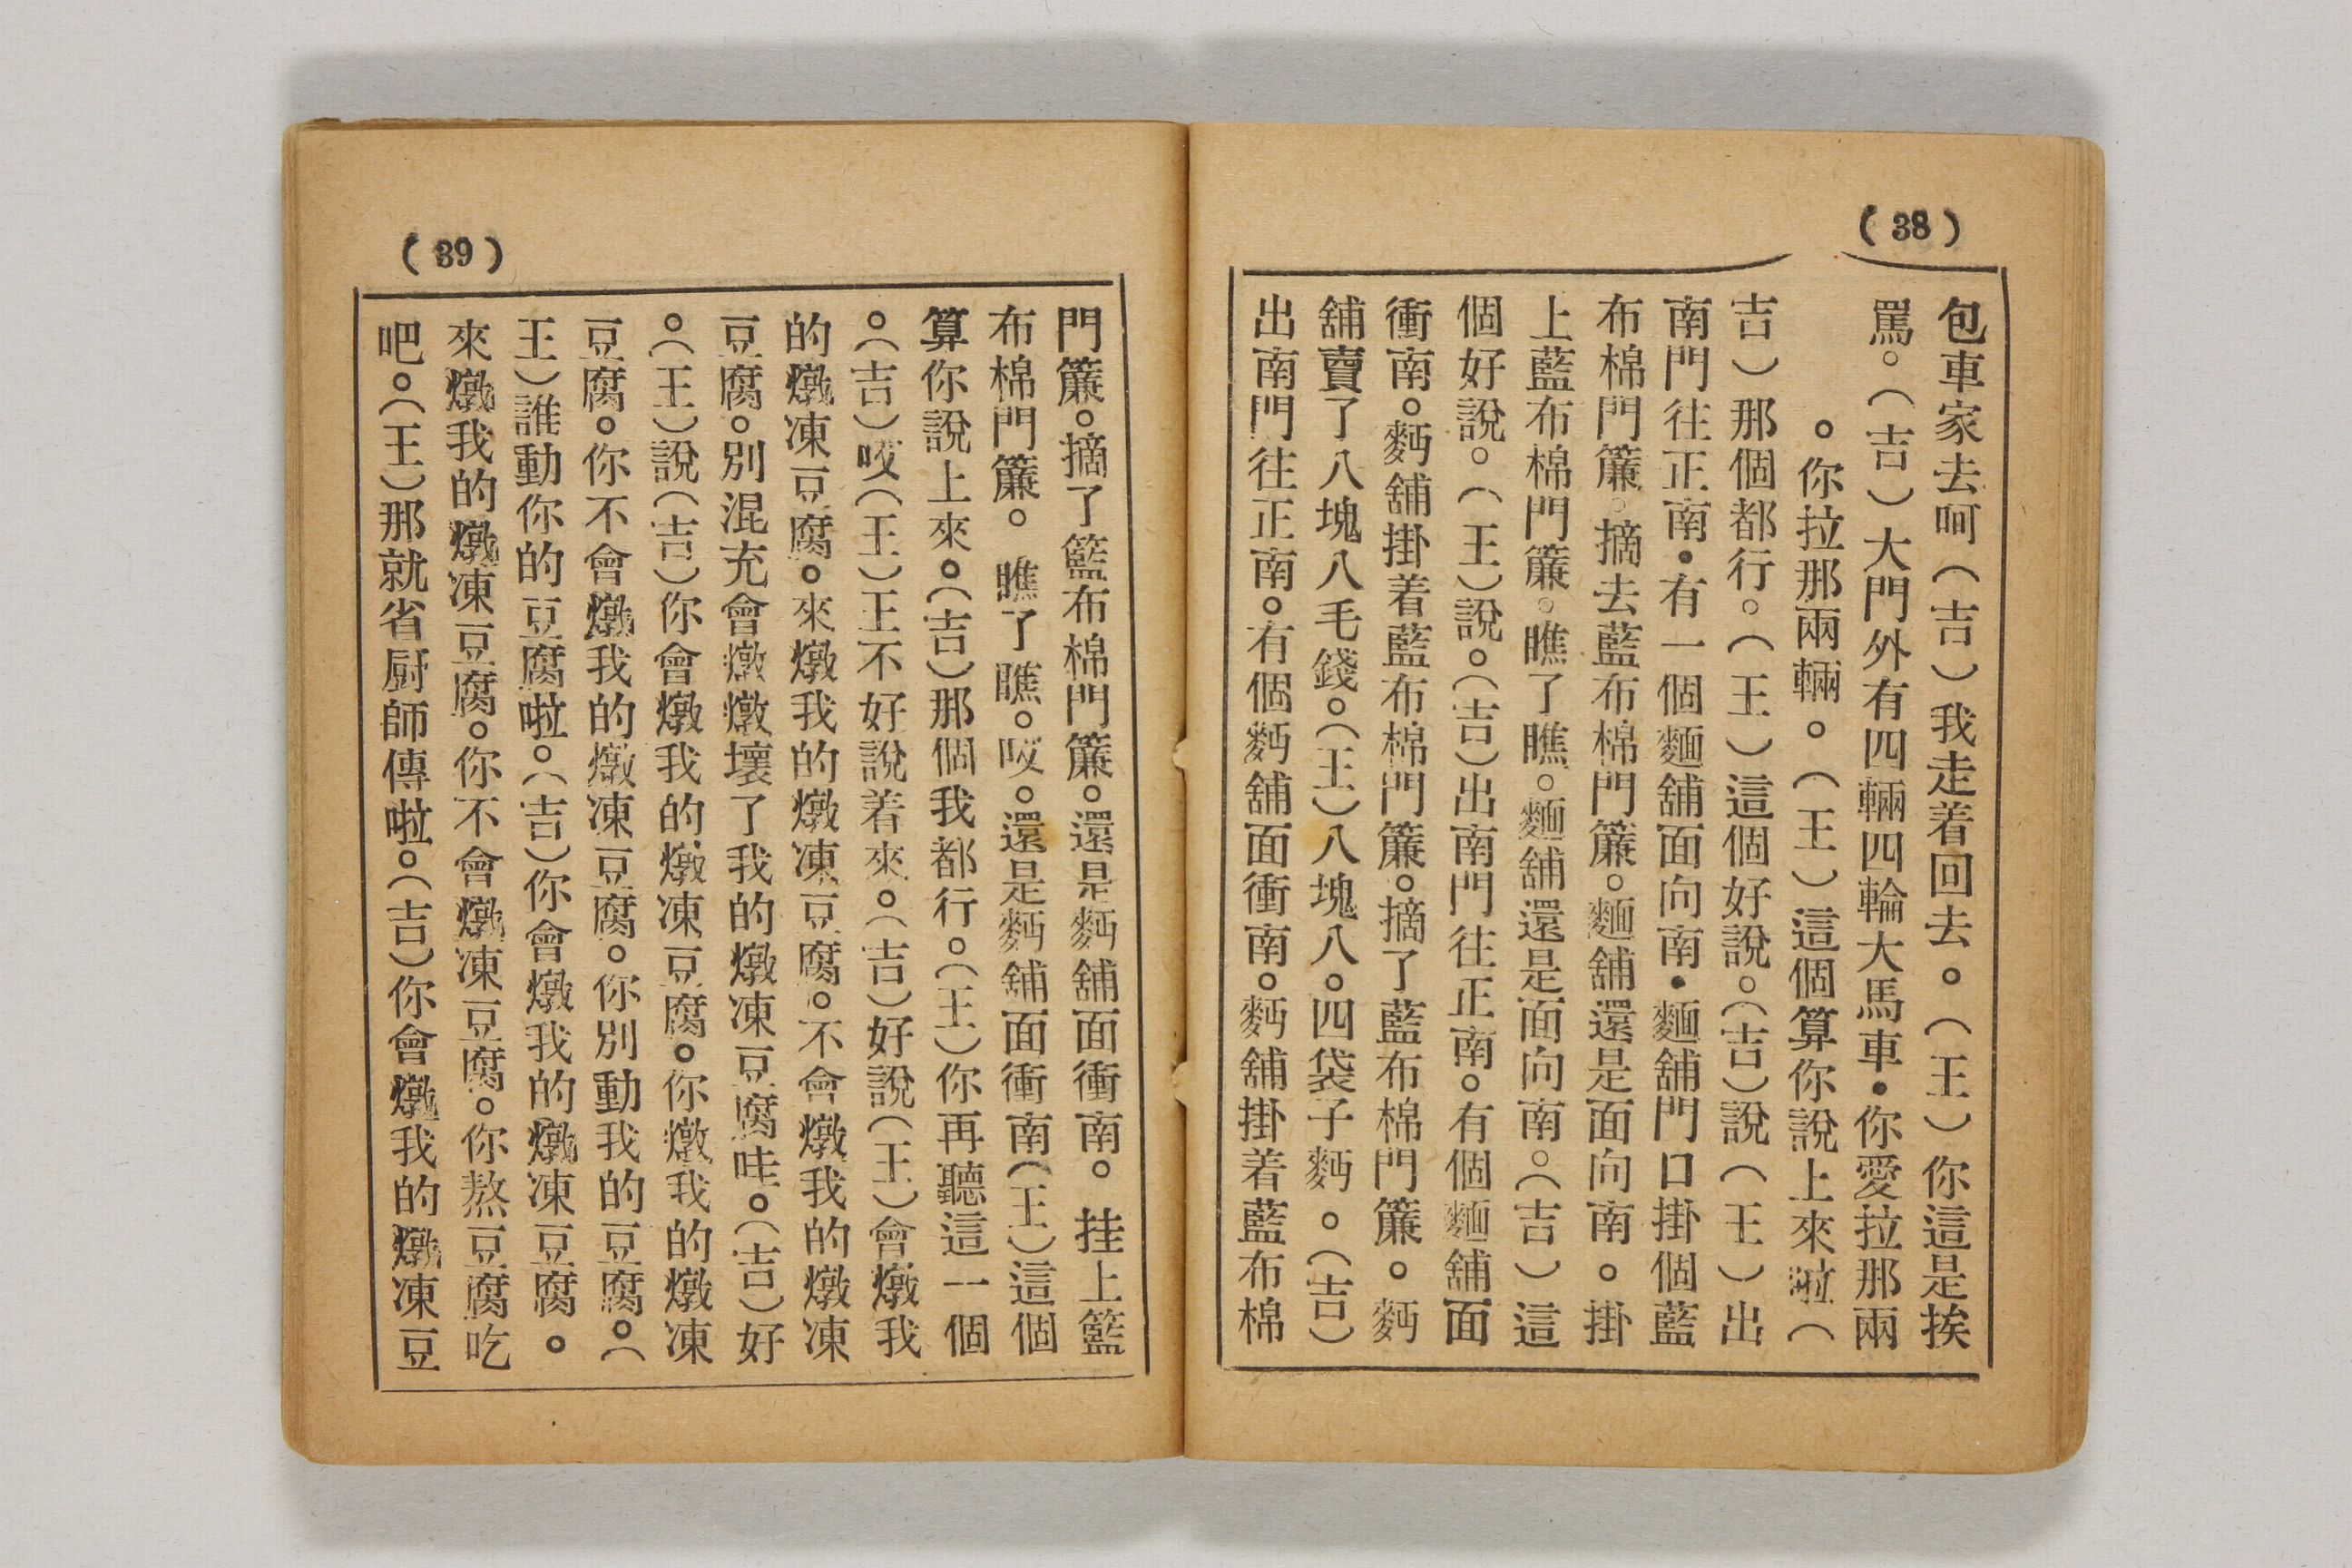 (38)
包車家去呵(吉)我走着回去。(王)你這是挨
罵。(吉)大門外有四輛四輪大馬車•你愛拉那兩
。你拉那兩輛。(王)這個算你說上來啦(
吉)那個都行。(王)這個好說。(吉)說(王)出
南門往正南•有一個麵舖面向南•麵舖門口掛個藍
布棉門簾。摘去藍布棉門簾。麵舖還是面向南。掛
上藍布棉門簾。瞧了瞧。麵舖還是面向南。(吉)這
個好說。(王)說。(吉)出南門往正南。有個麵舖面
衝南。麪舖掛着藍布棉門簾。摘了藍布棉門簾。麪
舖賣了八塊八毛錢。(王)八塊八。四袋子麪。(吉)
出南門往正南。有個麪舖面衝南。麪舖掛着藍布棉
(39)
門簾。摘了籃布棉門簾。還是麪舖面衝南。挂上籃
布棉門簾。瞧了瞧。哎。還是麪舖面衝南(王)這個
算你說上來。(吉)那個我都行。(王)你再聽這一個
。(吉)哎(王)王不好說着來。(吉)好說(王)會燉我
的燉凍豆腐。來燉我的燉凍豆腐。不會燉我的燉凍
豆腐。別混充會燉燉壞了我的燉凍豆腐哇。(吉)好
。(王)說(吉)你會燉我的燉凍豆腐。你燉我的燉凍
豆腐。你不會燉我的燉凍豆腐。你別動我的豆腐。(
王)誰動你的豆腐啦。(吉)你會燉我的燉凍豆腐。
來燉我的燉凍豆腐。你不會燉凍豆腐。你熬豆腐吃
吧。(王)那就省厨師傅啦。(吉)你會燉我的燉凍豆